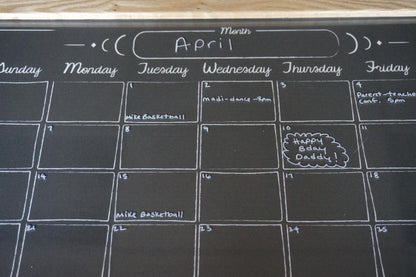 Month
April
Sunday Monday Tuesday Wednesday Thursday Friday
1 2 3 4
Madi-dance-8pm
Parent-teache
Conf. 5pm
Mike Basketball
7 8 9 10 11
Happy
Bday
Daddy!
14 15 16 17 18
Mike Basketball
21 22 23 24 25